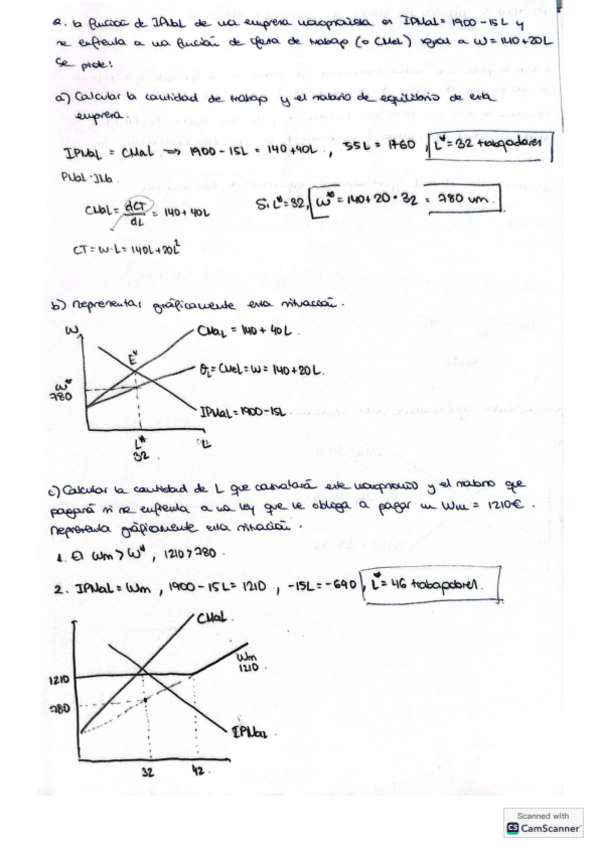 2. la función de IPMaL de una empresa monopsonista es IPMaL = 1900 - 15L y
se enfrenta a una función de oferta de trabajo (o CMeL) igual a W = 140 + 20L
Se pide:
a) Calcular la cantidad de trabajo y el salario de equilibrio de esta
empresa.
IPMaL = CMaL → 1900 - 15L = 140 + 40L, 55L = 1760, L* = 32 trabajadores
CMaL = dCT/dL = 140 + 40L
Si L* = 32, W* = 140 + 20 · 32 = 780 um.
CT = W · L = 140L + 20L²
b) Representar gráficamente esta situación.
W
CMaL = 140 + 40L.
E*
OL = CMeL = W = 140 + 20L.
W*
780
IPMaL = 1900 - 15L
L*
L
32
c) Calcular la cantidad de L que contratará este monopsonio y el salario que
pagará si se enfrenta a una ley que le obliga a pagar un Wm = 1210€.
Representa gráficamente esta situación.
1. El Wm > W*, 1210 > 780.
2. IPMaL = Wm, 1900 - 15L = 1210, -15L = -690, L* = 46 trabajadores.
CMaL
Wm
1210
1210
780
IPMaL
32
42.
Scanned with
CS CamScanner